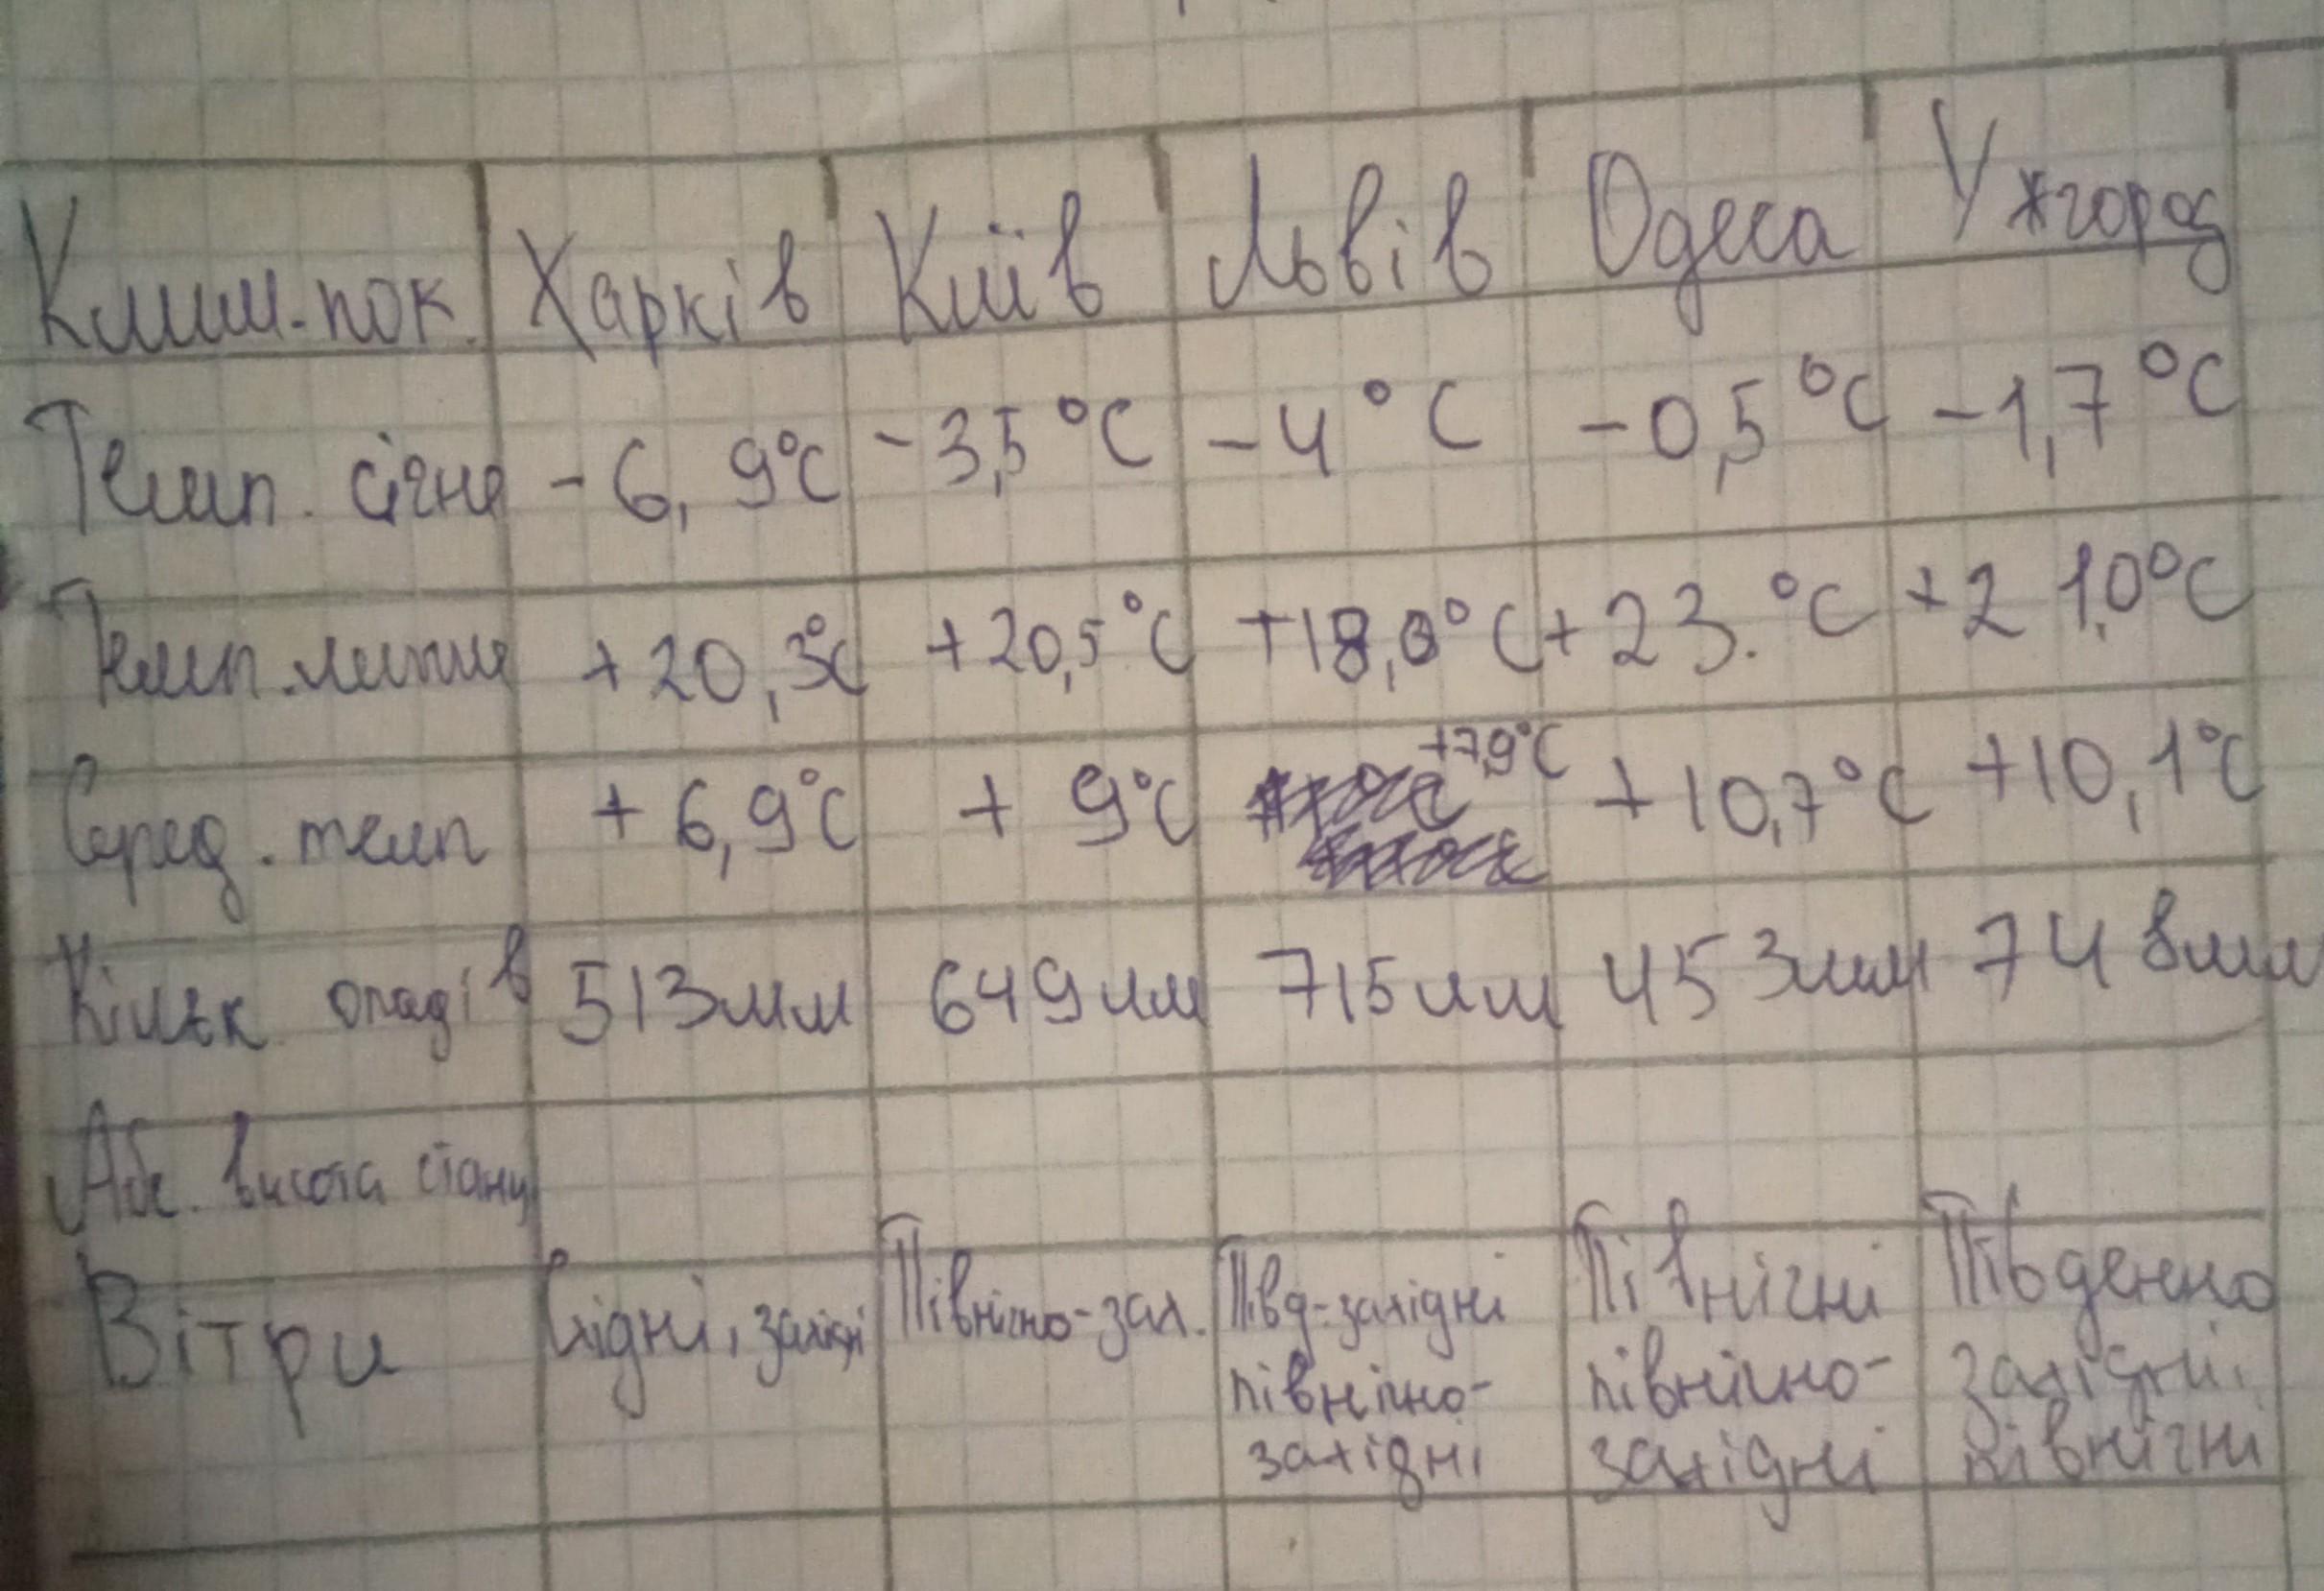 Клим.пок. Харків Київ Львів Одеса Ужгород
Темп. січня -6,9°С -3,5°С -4°С -0,5°С -1,7°С
Темп.липня +20,3°С +20,5°С +18,0°С +23.°С +21,0°С
Серед.темп +6,9°С +9°С +7,9°С +10,7°С +10,1°С
Кільк опадів 513мм 649мм 715мм 453мм 748мм
Абс. висота станц
Вітри Східні, західні Північно-зах. Півд-західні Північні Південно
північно- північно- західні,
західні західні північні